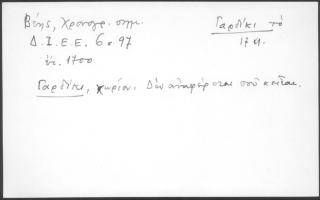 Βέης, Χρονογρ. σημ.
Γαρδίκι τό
Δ.Ι.Ε.Ε. 6 σ. 97
ἔτ. 1700
Γαρδίκι, χωρίον. Δέν ἀναφέρεται ποῦ κεῖται.